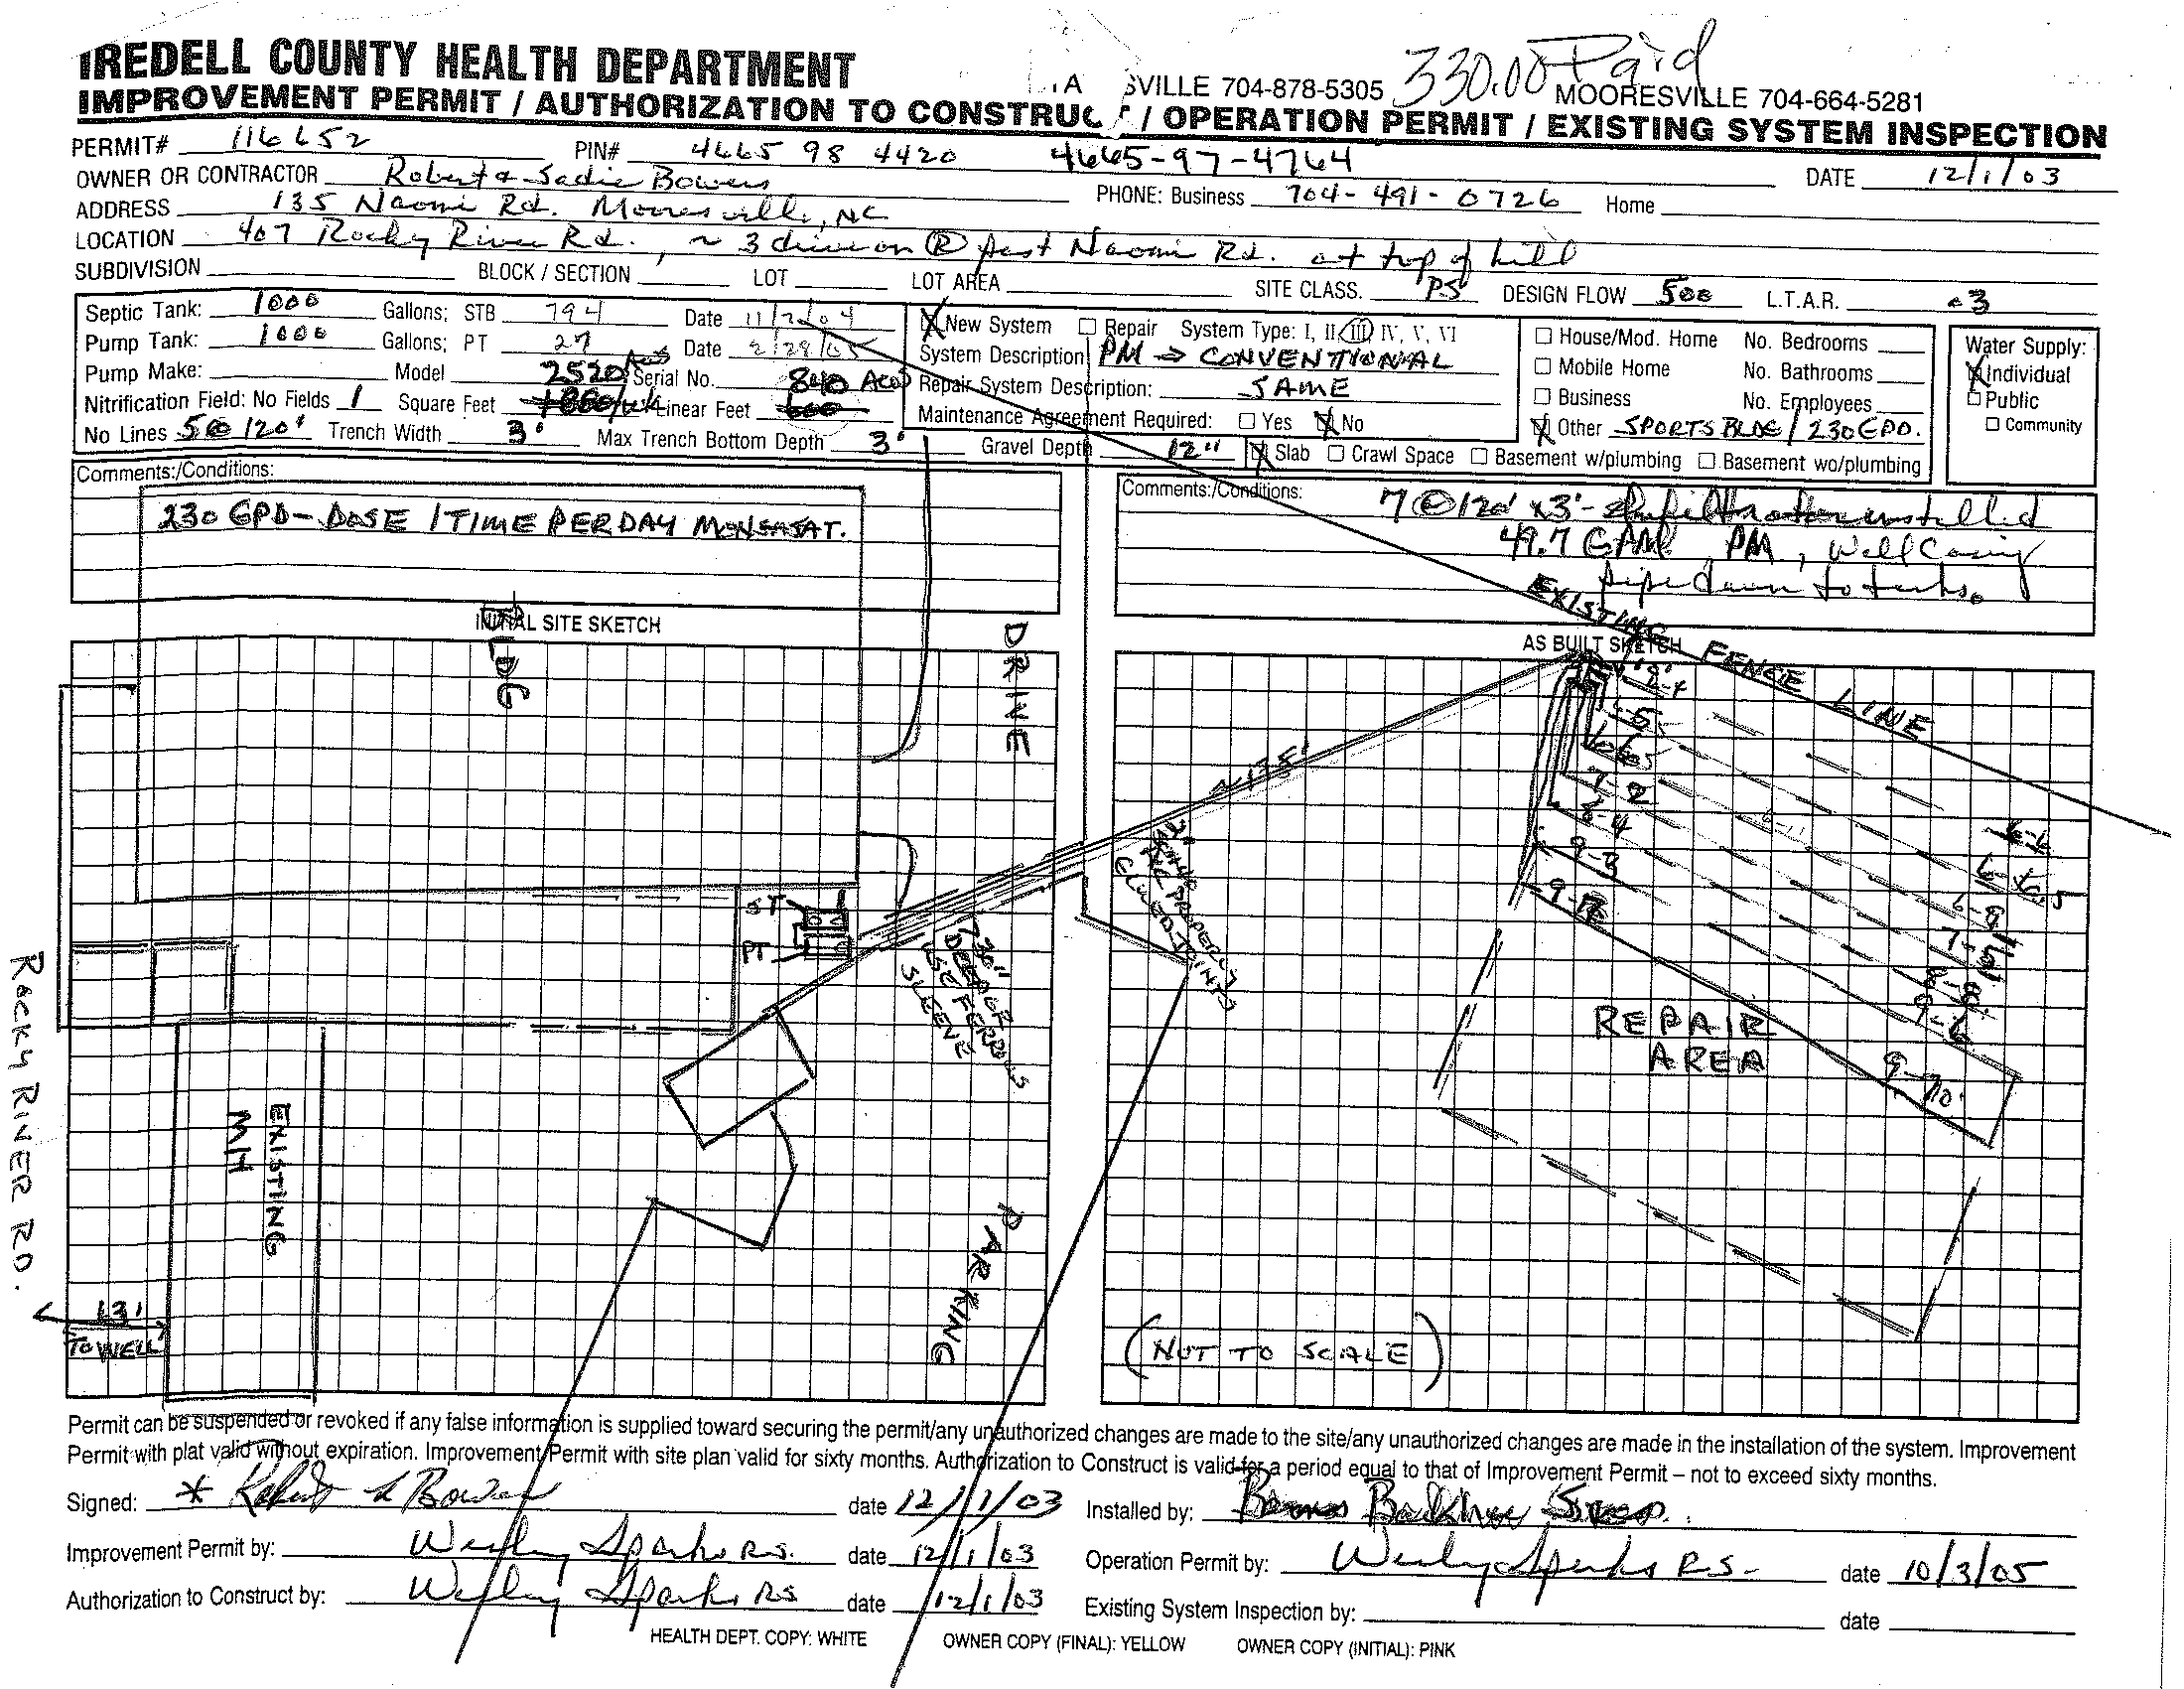 IREDELL COUNTY HEALTH DEPARTMENT
SVILLE 704-878-5305 330.00 Paid MOORESVILLE 704-664-5281
IMPROVEMENT PERMIT / AUTHORIZATION TO CONSTRUC / OPERATION PERMIT / EXISTING SYSTEM INSPECTION
PERMIT# 116652 PIN# 4665 98 4420 4665-97-4764
OWNER OR CONTRACTOR Robert & Sadie Bowers DATE 12/1/03
ADDRESS 135 Naomi Rd. Mooresville, NC PHONE: Business 704-491-0726 Home
LOCATION 407 Rocky River Rd., ~ 3 drive on R past Naomi Rd. at top of hill
SUBDIVISION BLOCK / SECTION LOT LOT AREA SITE CLASS. PS DESIGN FLOW 500 L.T.A.R. .3
Septic Tank: 1000 Gallons; STB 794 Date 11/2/04
Pump Tank: 1000 Gallons; PT 27 Date 2/28/05
Pump Make: Model 2520 Serial No. 840
Nitrification Field: No Fields 1 Square Feet Linear Feet 600
No Lines 5@120' Trench Width 3' Max Trench Bottom Depth 3' Gravel Depth 12"
X New System Repair System Type: I, II, III, IV, V, VI
System Description PM → CONVENTIONAL
Repair System Description: SAME
Maintenance Agreement Required: Yes X No
X Slab Crawl Space Basement w/plumbing Basement wo/plumbing
House/Mod. Home No. Bedrooms
Mobile Home No. Bathrooms
Business No. Employees
X Other SPORTS BLDG / 230 GPD.
Water Supply:
X Individual
Public
Community
Comments:/Conditions:
230 GPD - DOSE 1 TIME PER DAY MON-SAT.
Comments:/Conditions: 7@120' x3' - Infiltrator installed
49.7 GPM PM, Well Casing
pipe down to tanks.
INITIAL SITE SKETCH
BLDG
DRIVE
AS BUILT SKETCH
EXISTING FENCE LINE
~135'
2"
PVC PROPERLY
GLUED JOINTS
ST
PT
730"
DEEP OR
USE FERROUS
SLEEVE
5-4
7-2
8-4
9-3
6-6
6-8
8-8
9-6
9-10
REPAIR
AREA
ROCKY RIVER RD.
EXISTING
M/H
PARKING
131
TO WELL
(NOT TO SCALE)
Permit can be suspended or revoked if any false information is supplied toward securing the permit/any unauthorized changes are made to the site/any unauthorized changes are made in the installation of the system. Improvement
Permit with plat valid without expiration. Improvement Permit with site plan valid for sixty months. Authorization to Construct is valid for a period equal to that of Improvement Permit – not to exceed sixty months.
Signed: * Robert L Bowers date 12/1/03 Installed by: Backhoe
Improvement Permit by: Wesley Sparks R.S. date 12/1/03 Operation Permit by: Wesley Sparks R.S. date 10/3/05
Authorization to Construct by: Wesley Sparks RS date 12/1/03 Existing System Inspection by: date
HEALTH DEPT. COPY: WHITE OWNER COPY (FINAL): YELLOW OWNER COPY (INITIAL): PINK